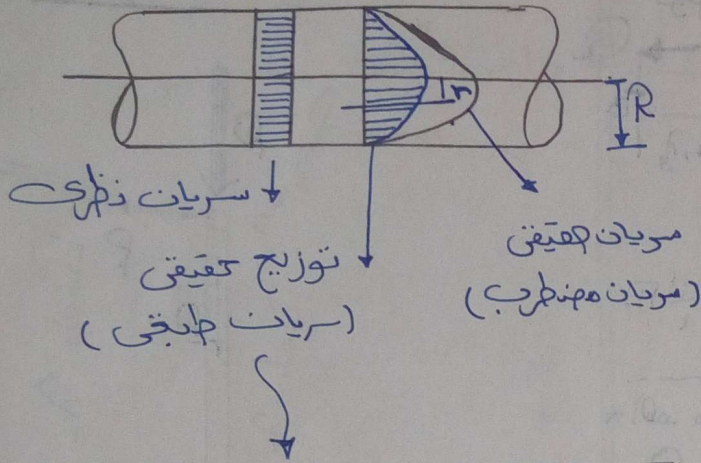 r
R
سريان نظرى
توزيع حقيقى
(سريان طبقى)
سريان حقيقى
(سريان مضطرب)